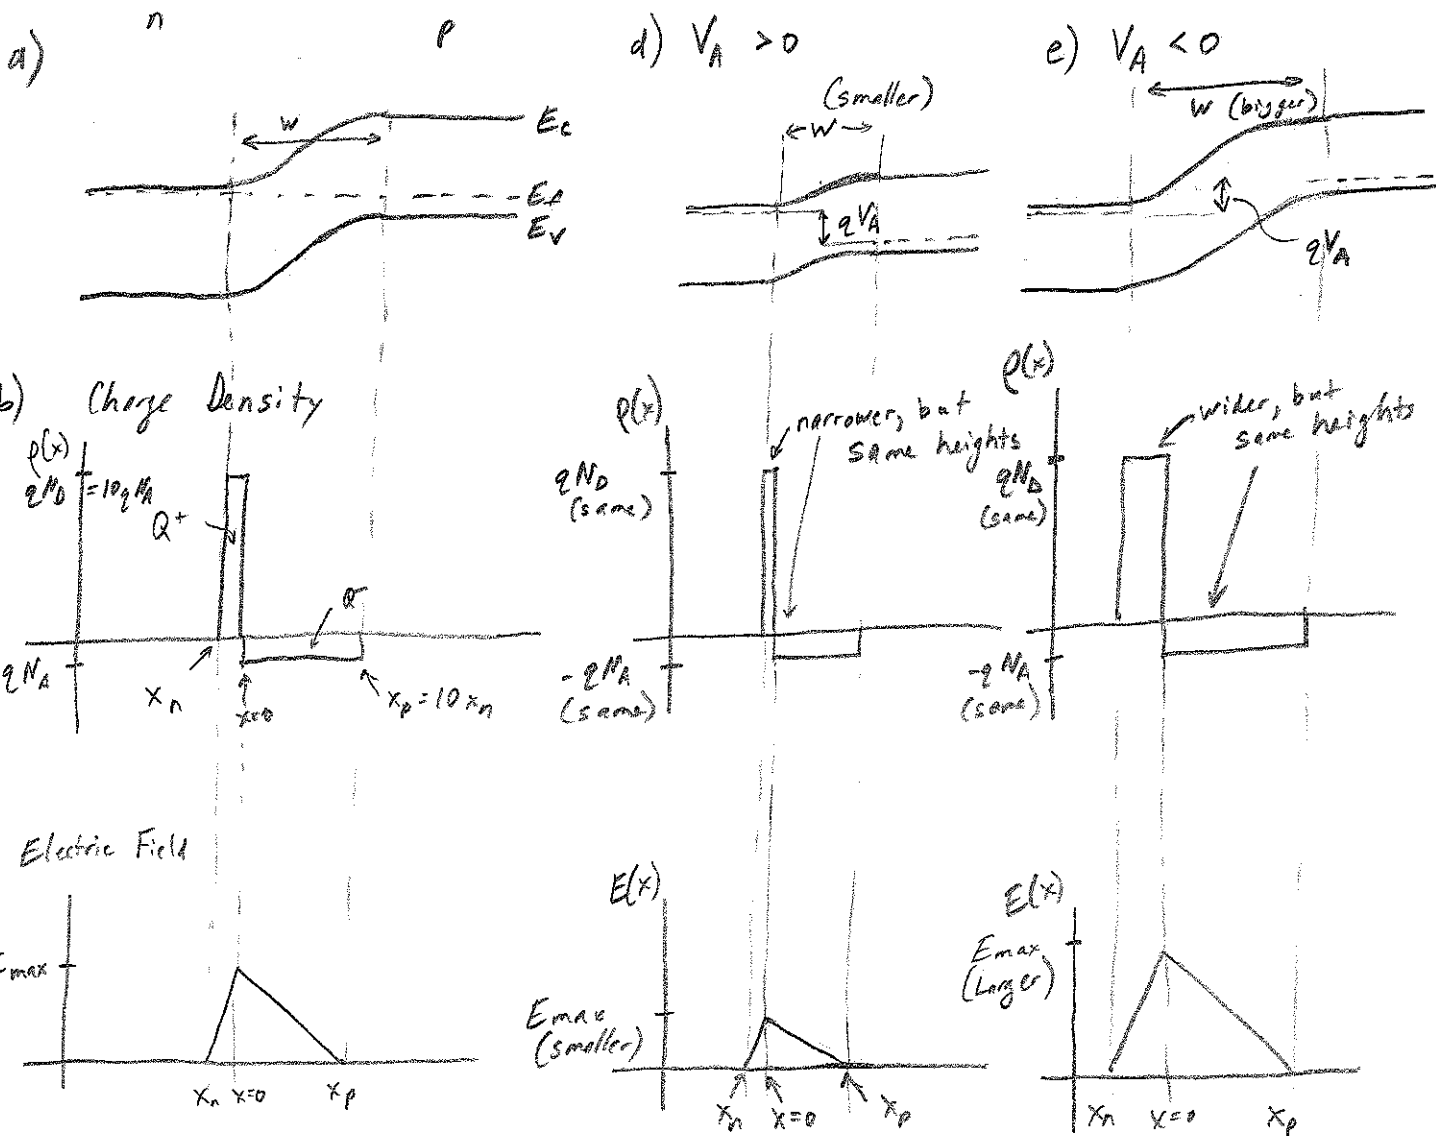 a)
n
p
W
E_c
E_f
E_v
b) Charge Density
ρ(x)
qN_D = 10qN_A
Q+
Q-
qN_A
x_n
x=0
x_p = 10x_n
Electric Field
E_max
x_n x=0 x_p
d) V_A > 0
(smaller)
W
qV_A
ρ(x)
narrower, but
same heights
qN_D
(same)
-qN_A
(same)
E(x)
Emax
(smaller)
x_n x=0 x_p
e) V_A < 0
W (bigger)
qV_A
ρ(x)
wider, but
same heights
qN_D
(same)
-qN_A
(same)
E(x)
Emax
(Larger)
x_n x=0 x_p